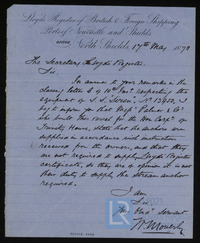 Lloyds Register of British & Foreign Shipping
Port of Newcastle and Shields
North Shields, 17th May 1879
The Secretary Lloyds Register
Sir
In answer to your remarks in the
letter of 10th inst. respecting the
equipment of S.S. No 13,402, I
beg to inform you that Messrs Palmer & Co
who built this vessel for the Hon Corpn of
Trinity House, state that the anchors are
supplied in accordance with instructions
received from the owners, and that they
are not required to supply Lloyds Register
certificates, so they are of opinion it is not
their duty to supply the stream anchor
required.
I am
Sir
Your Obedt Servant